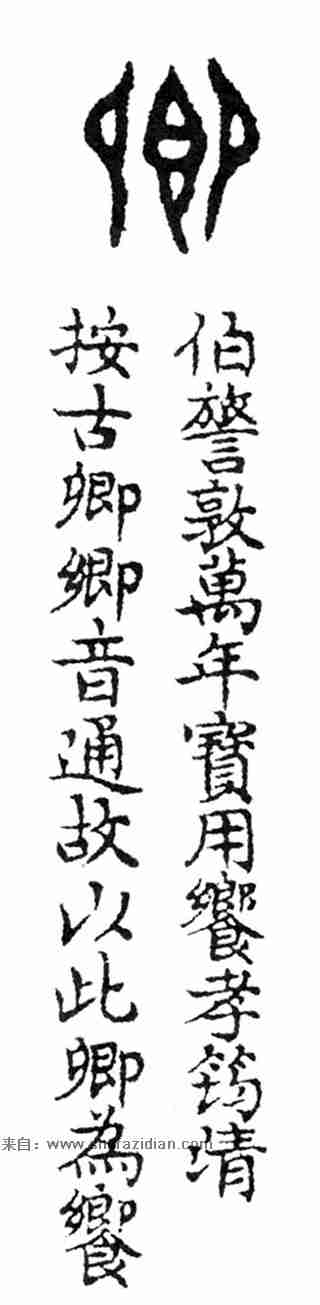 卿
伯警敦萬年寶用饗孝筠清
按古卿鄉音通故以此卿為饗
来自：www.shufazidian.com